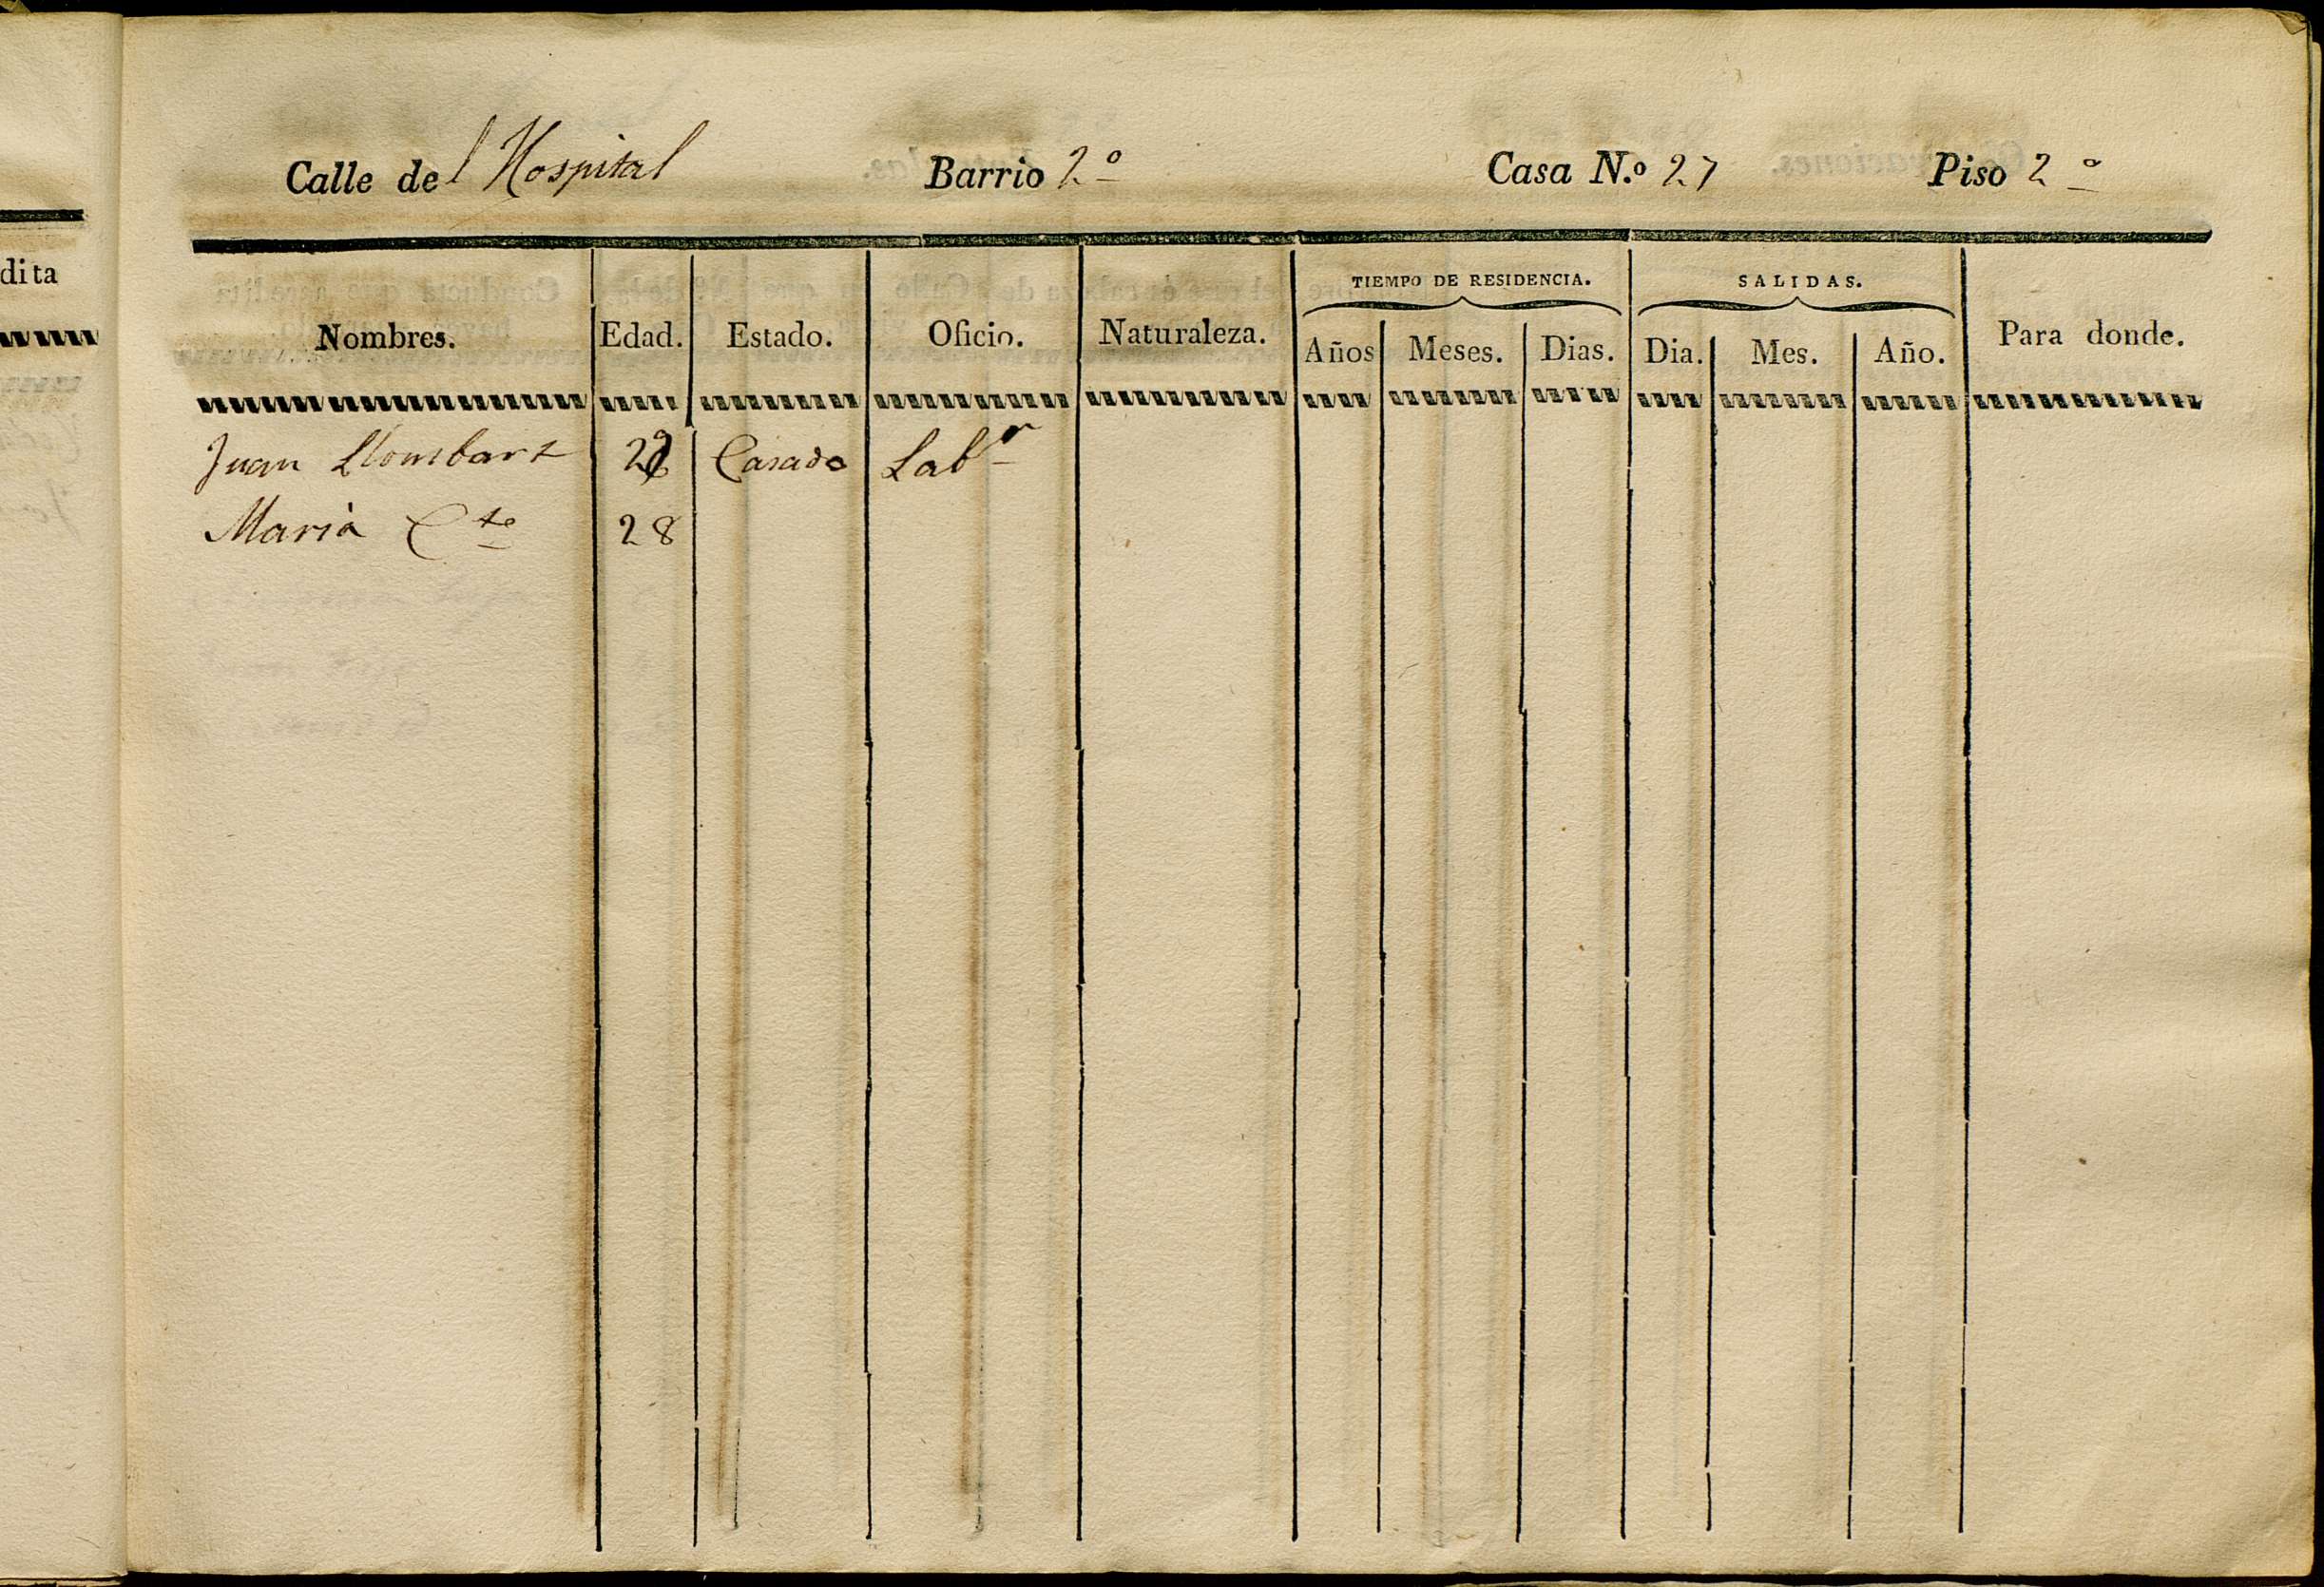 Calle del Hospital Barrio 2º Casa N.º 27 Piso 2º
dita
TIEMPO DE RESIDENCIA. SALIDAS.
Nombres. Edad. Estado. Oficio. Naturaleza. Años Meses. Dias. Dia. Mes. Año. Para donde.
Juan Llombart Casado Labr
Maria Cte 28